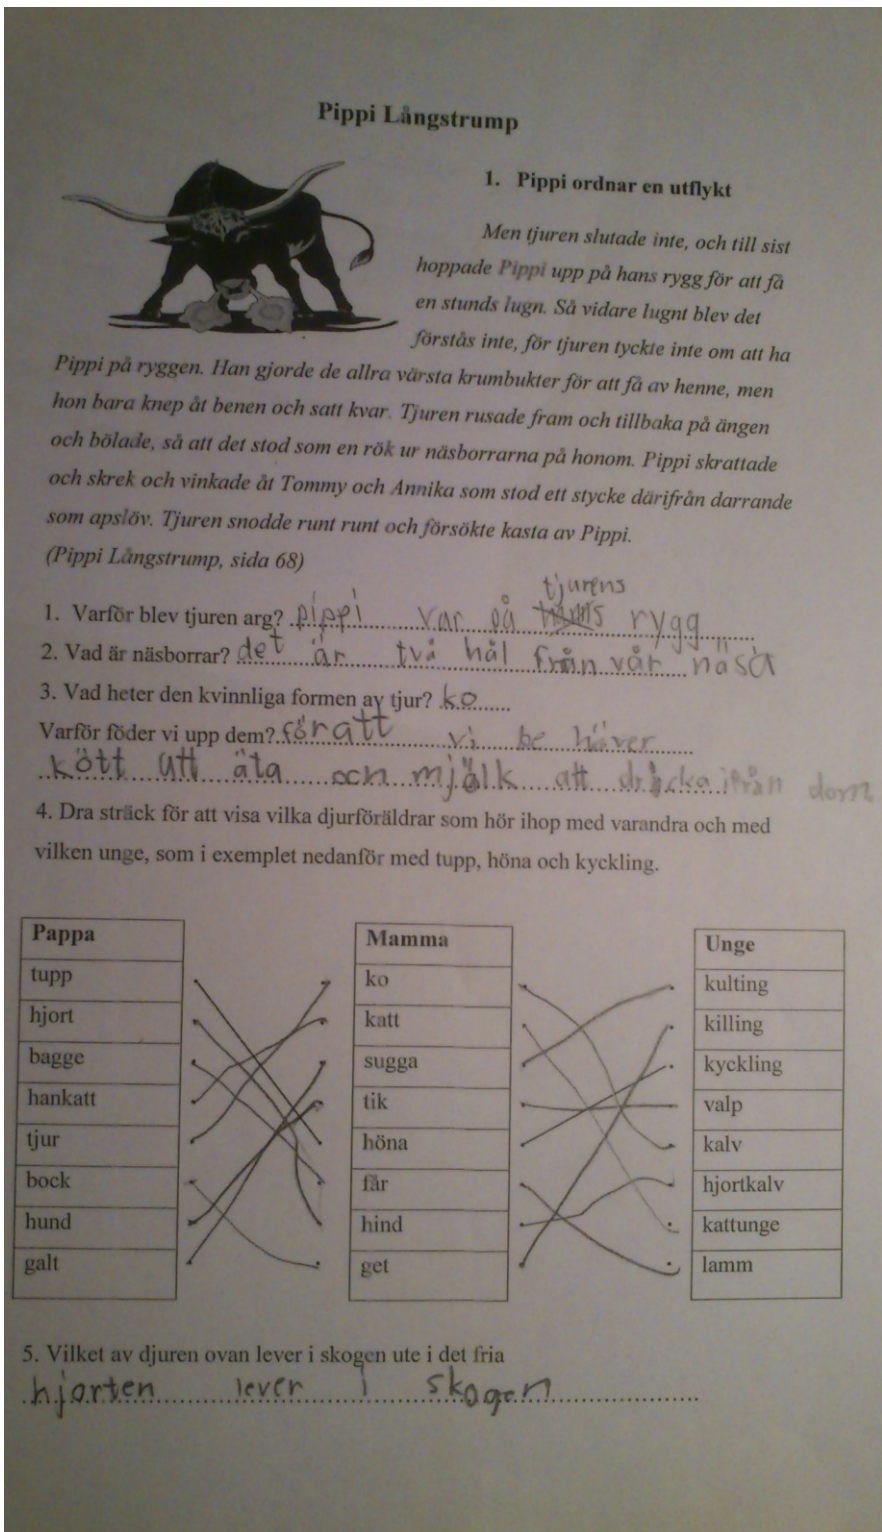 Pippi Långstrump
1. Pippi ordnar en utflykt
Men tjuren slutade inte, och till sist
hoppade Pippi upp på hans rygg för att få
en stunds lugn. Så vidare lugnt blev det
förstås inte, för tjuren tyckte inte om att ha
Pippi på ryggen. Han gjorde de allra värsta krumbukter för att få av henne, men
hon bara knep åt benen och satt kvar. Tjuren rusade fram och tillbaka på ängen
och bölade, så att det stod som en rök ur näsborrarna på honom. Pippi skrattade
och skrek och vinkade åt Tommy och Annika som stod ett stycke därifrån darrande
som apslöv. Tjuren snodde runt runt och försökte kasta av Pippi.
(Pippi Långstrump, sida 68)
tjurens
1. Varför blev tjuren arg? pippi var på rygg
2. Vad är näsborrar? det är två hål från vår näsa
3. Vad heter den kvinnliga formen av tjur? ko
Varför föder vi upp dem? föratt vi be höver
kött att äta och mjölk att dricka ifrån dom
4. Dra sträck för att visa vilka djurföräldrar som hör ihop med varandra och med
vilken unge, som i exemplet nedanför med tupp, höna och kyckling.
Pappa Mamma Unge
tupp ko kulting
hjort katt killing
bagge sugga kyckling
hankatt tik valp
tjur höna kalv
bock får hjortkalv
hund hind kattunge
galt get lamm
5. Vilket av djuren ovan lever i skogen ute i det fria
hjorten lever i skogen